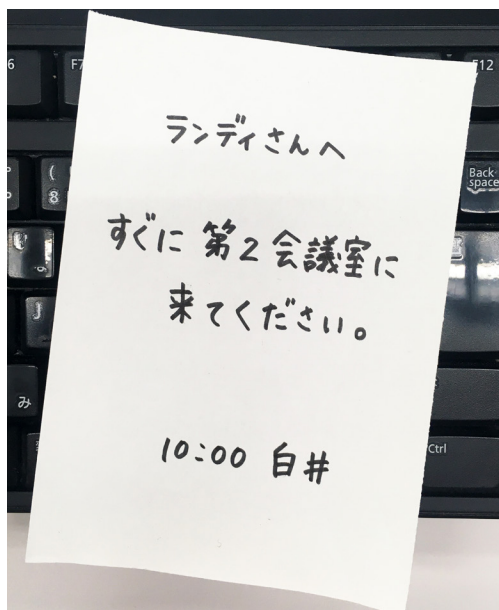 ランディさんへ
すぐに 第2会議室に
来てください。
10:00 白井
6
F7
F12
(
8
Back
space
み
Ctrl